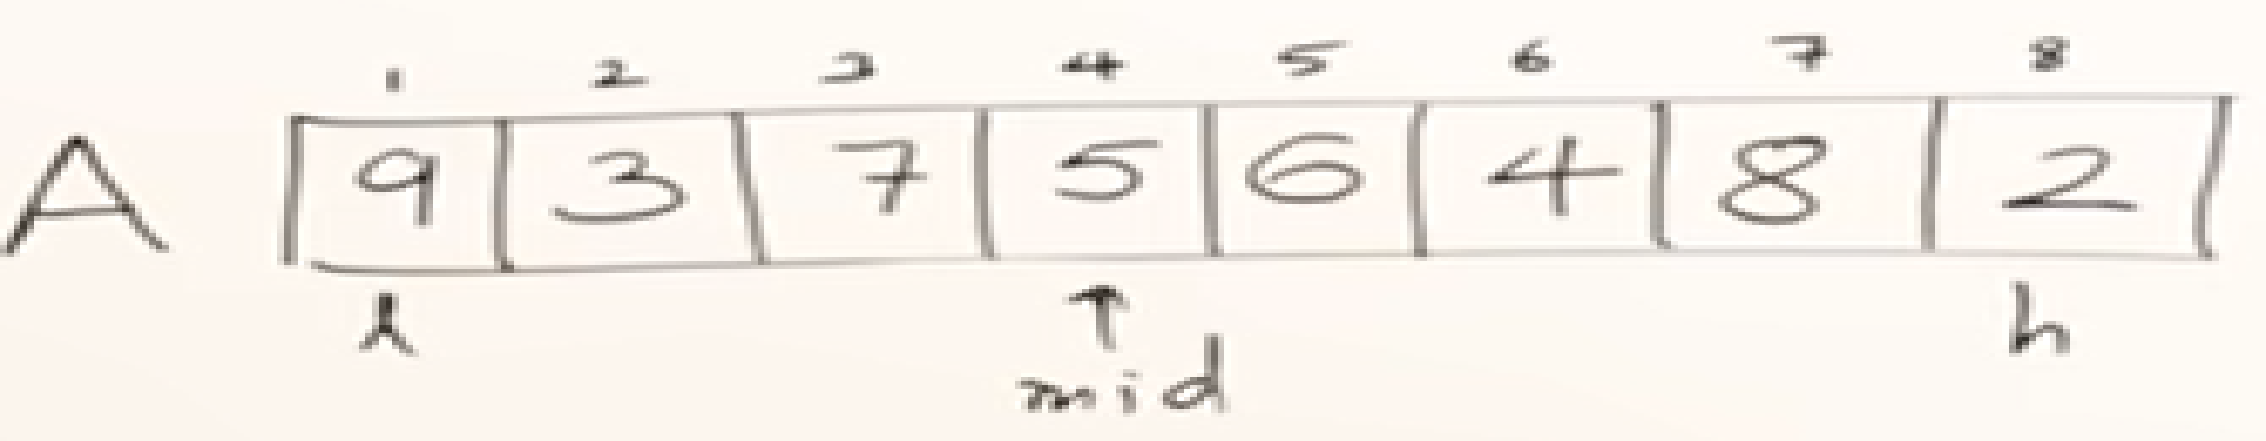 1 2 3 4 5 6 7 8
A 9 3 7 5 6 4 8 2
l ↑ h
mid